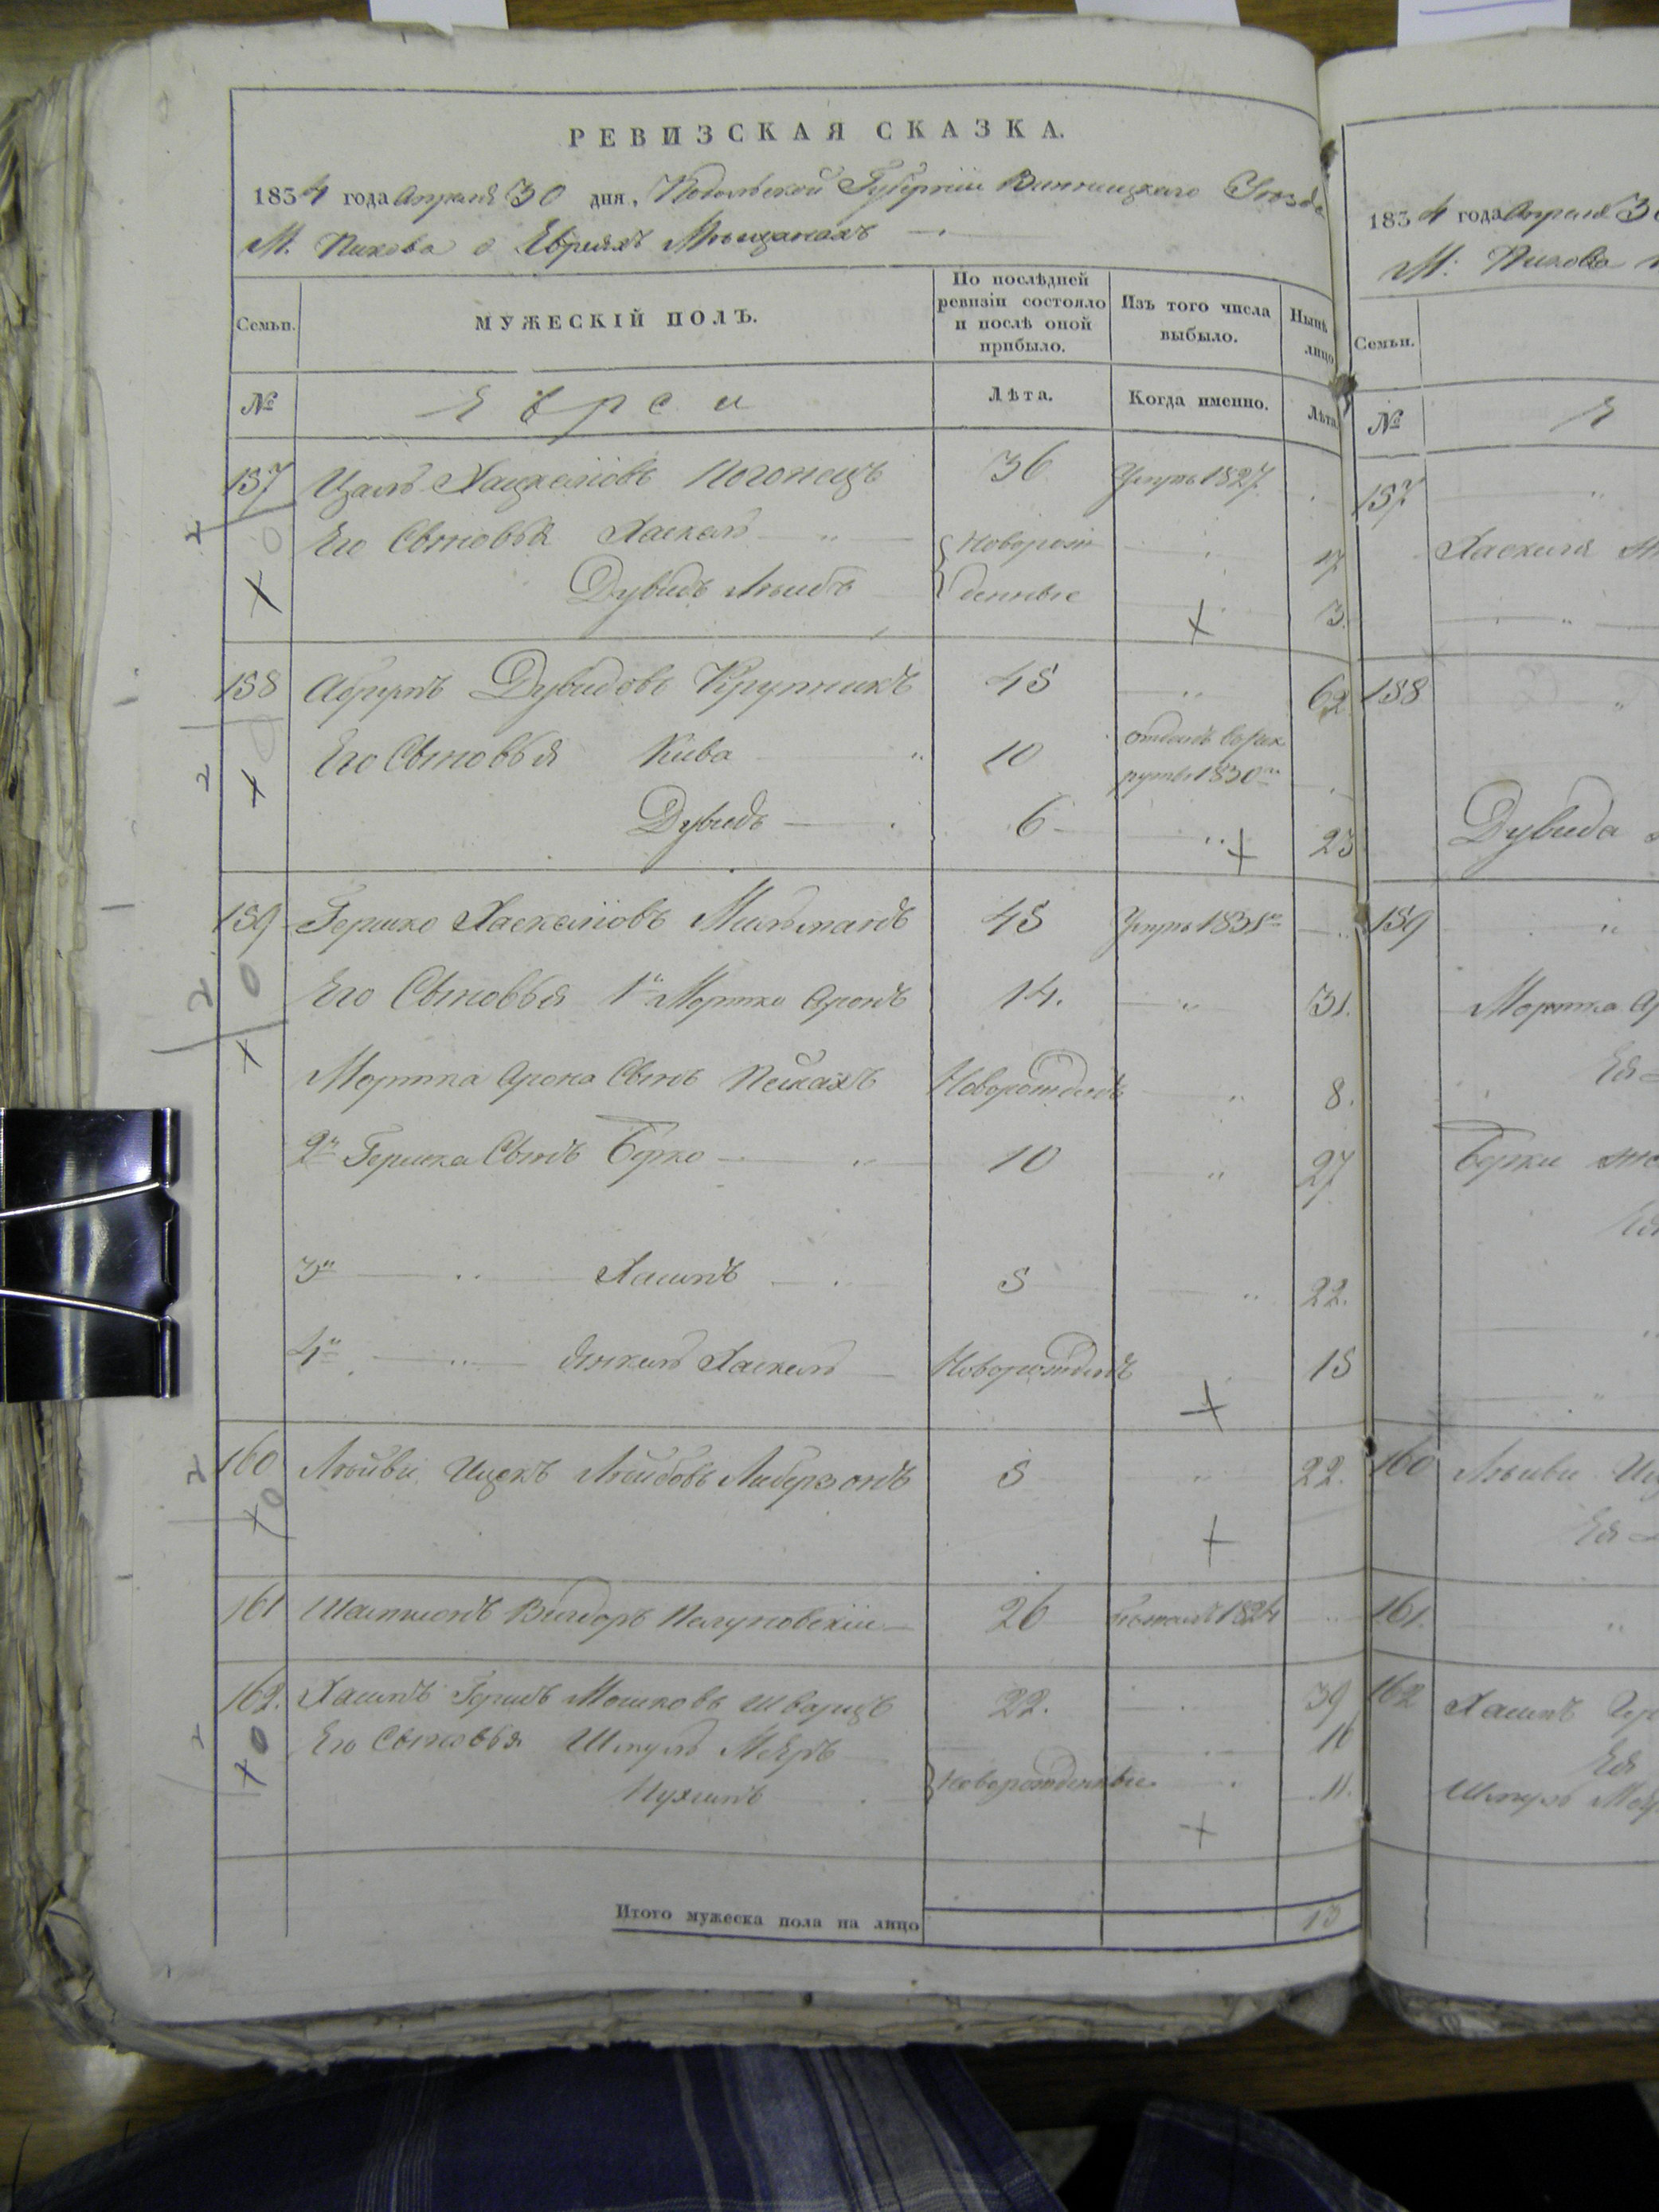 РЕВИЗСКАЯ СКАЗКА.
1834 года Апреля 30 дня, Подольской Губерніи Винницкаго Уезда
М. Пикова о Евреяхъ Мѣщанахъ
Семьи. МУЖЕСКІЙ ПОЛЪ. По послѣдней ревизіи состояло и послѣ оной прибыло. Изъ того числа выбыло. Нынѣ лицо
№ Евреи Лѣта. Когда именно. Лѣта
157 Хацкелiовъ Погонецъ 36 Умръ 1827.
Его Сыновья Хаскель Новорож 17
Дувидъ Лѣйбъ денные 3.
158 Абрумъ Дувидовъ Крупникъ 45 62
Его Сыновья Кива 10 отданъ въ рек
руты 1830го
Дувидъ 6 23
159 Гершко Хаскелiовъ Мильманъ 45 Умръ 1831го
Его Сыновья 1й Мортко Аронъ 14. 31.
Мортка Арона Сынъ Пейсахъ Новорожденъ 8.
2й Гершка Сынъ Берко 10 27
3й Хаимъ 5 22.
4й Янкель Хаскель Новорожденъ 15
160 Лѣйви Ицекъ Лѣйбовъ Либерзонъ 5 22.
161 Вигдоръ 26 1824
162. Хаимъ Гершъ Мошковъ Шварцъ 22. 39
Его Сыновья Шмуль Меръ 16
Нухимъ Новорожденные 11.
Итого мужеска пола на лицо 13
1834 года Апреля 30
М. Пикова
Семьи.
№ Е
157
Хаскеля
158
Дувида
159
Мортка
Ея
Берки
160 Лѣйви
Ея
161.
162 Хаимъ
Ея
Шмуль